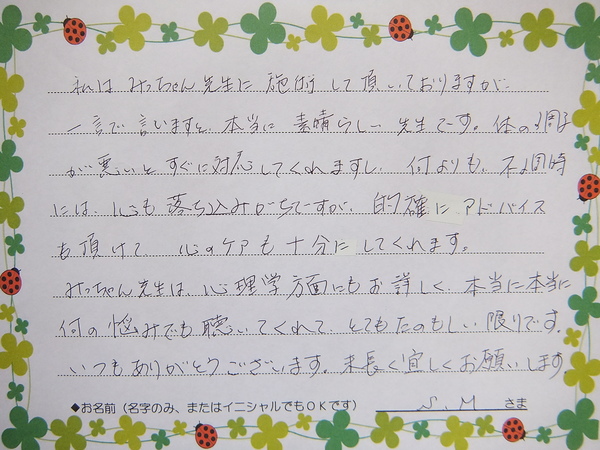 私はみっちゃん先生に施術して頂いておりますが、
一言で言いますと、本当に素晴らしー先生です。体の調子
が悪いとすぐに対応してくれますし、何よりも、不調時
には、心も落ち込みがちですが、的確にアドバイス
も頂けて、心のケアも十分にしてくれます。
みっちゃん先生は、心理学方面にもお詳しく、本当に本当に
何の悩みでも聴いてくれて、とてもたのもしい限りです。
いつもありがとうございます。末長く宜しくお願いします
◆お名前（名字のみ、またはイニシャルでもOKです） S.M さま